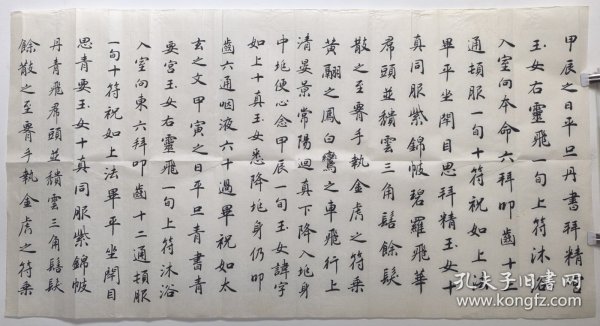 甲辰之日平旦丹書拜精宮
玉女右靈飛一旬上符沐浴
入室向本命六拜叩齒十二
通頓服一旬十符祝如上法
畢平坐閉目思拜精玉女十
真同服紫錦帔碧羅飛華
帬頭並穨雲三角髻餘髮
散之至腰手執金虎之符乘
黃翮之鳳白鸞之車飛行上
清晏景常陽迴真下降入兆身
中兆便心念甲辰一旬玉女諱字
如上十真玉女悉降兆身仍叩
齒六通咽液六十過畢祝如太
玄之文甲寅之日平旦青書青
要宮玉女右靈飛一旬上符沐浴
入室向東六拜叩齒十二通頓服
一旬十符祝如上法畢平坐閉目
思青要玉女十真同服紫錦帔
丹青飛帬頭並穨雲三角髻髮
餘散之至腰手執金虎之符乘
孔夫子旧书网
www.kongfz.com